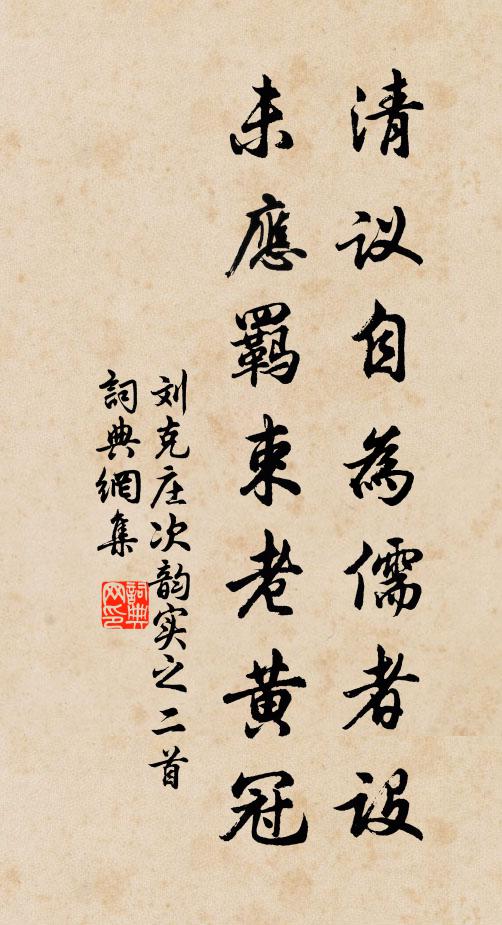 清议自為儒者设
未應羁束老黄冠
刘克庄次韵实之二首
詞典網集
詞典网印